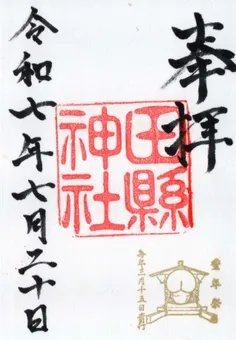 奉拝
田縣
神社
豊年祭
令和七年七月二十日